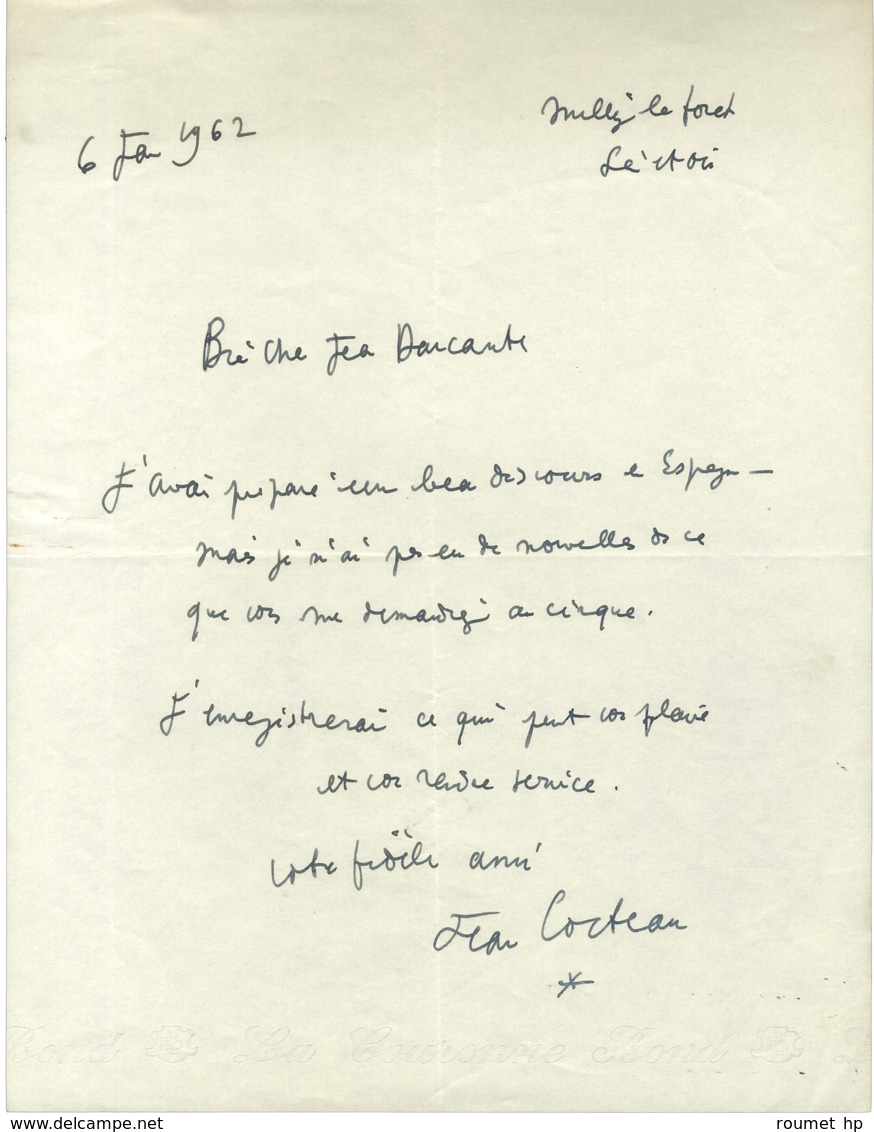 6 Jan 1962
Milly la foret
Seine et Oise
Bien cher Jean Darcante
J'avais préparé un beau discours en Espagne —
mais je n'ai pas eu de nouvelles de ce
que vous me demandiez au cirque.
J'enregistrerai ce qui peut vous plaire
et vous rendre service.
votre fidèle ami
Jean Cocteau
*
Bond La Couronne Bond L
www.delcampe.net
roumet hp